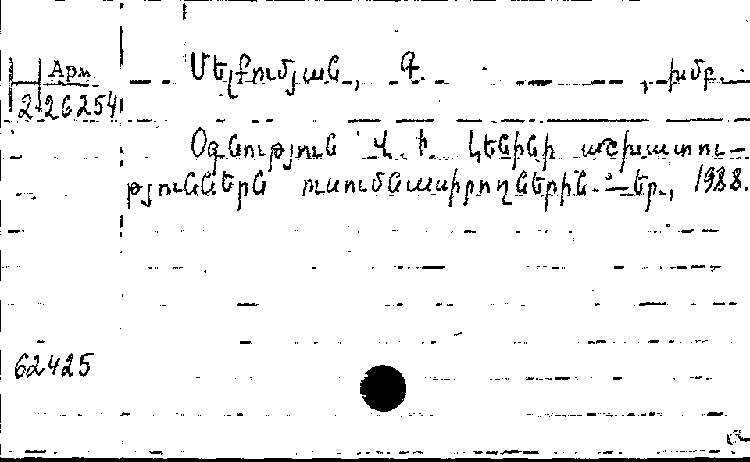 Арм
2-26254
Մելքումյան, Գ. , խմբ.
Օգնություն Վ. Ի. Լենինի աշխատու-
թյուններն ուսումնասիրողներին.- Եր., 1988.
62425